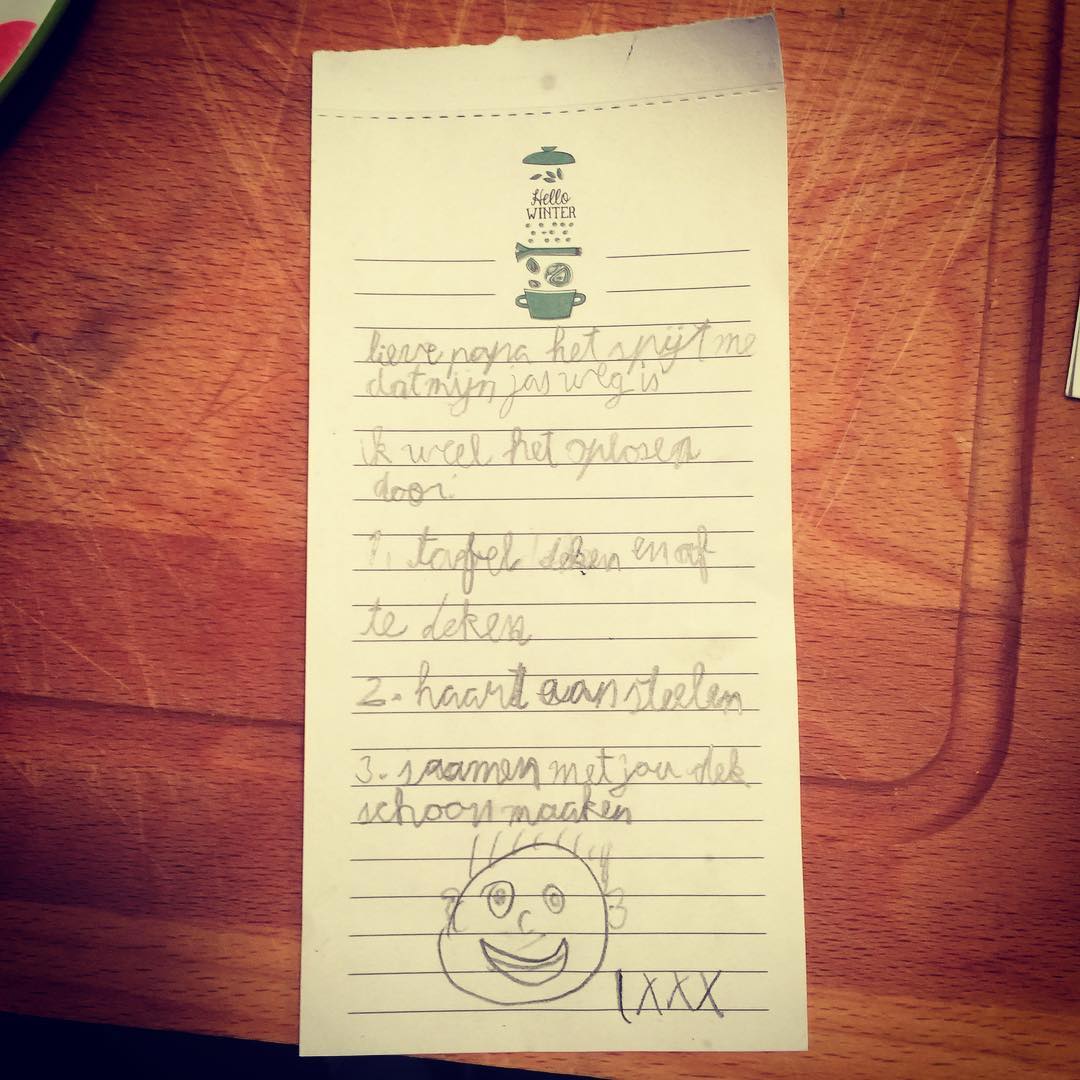 Hello
WINTER
lieve papa het spijt me
dat mijn jas weg is
ik weel het oplosen
door:
1. tafel deken en af
te deken
2. haart aan steelen
3. saamen met jou dek
schoon maaken
XXX